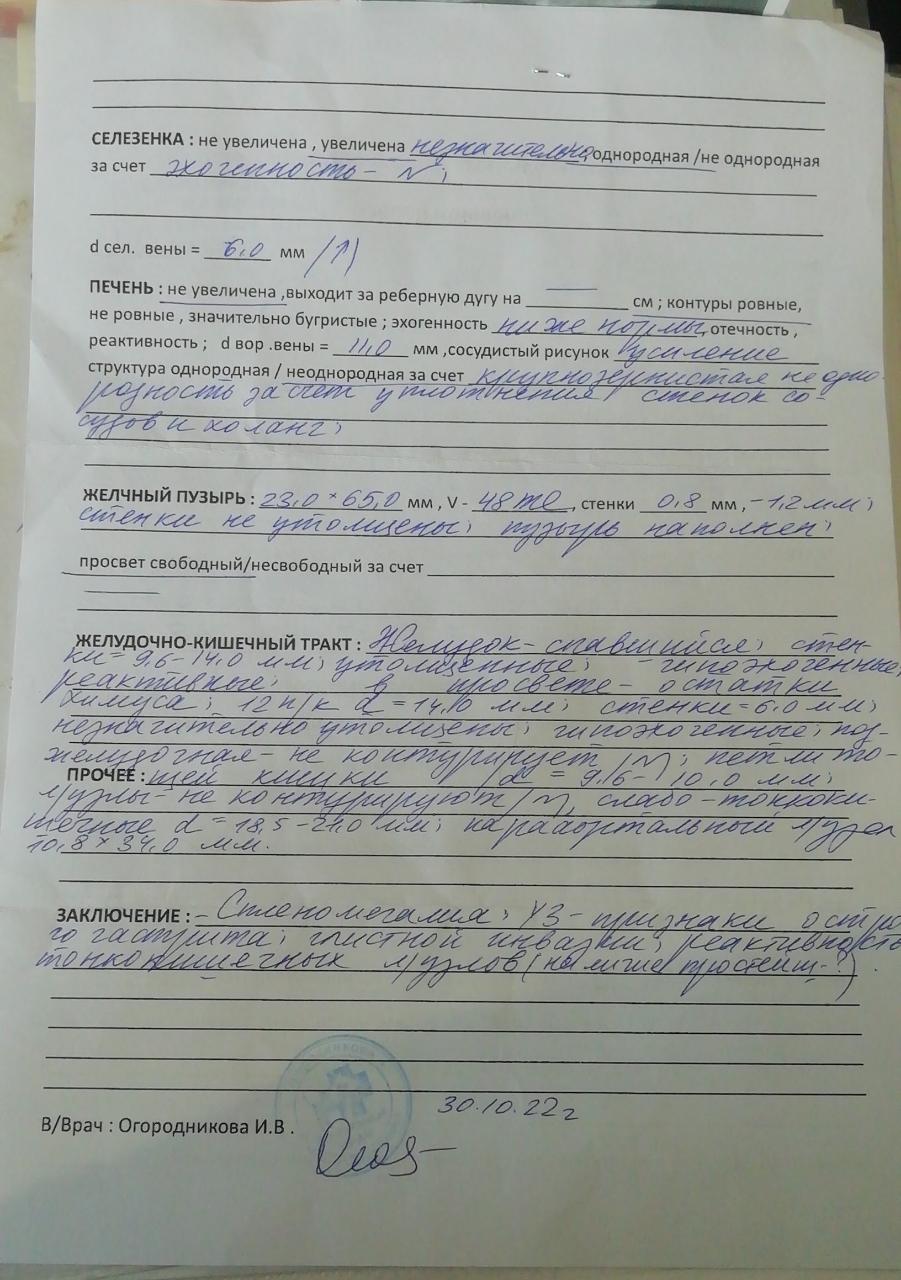 СЕЛЕЗЕНКА : не увеличена , увеличена незначительно, однородная /не однородная
за счет эхогенность - N;
d сел. вены = 6,0 мм (↑)
ПЕЧЕНЬ : не увеличена ,выходит за реберную дугу на — см ; контуры ровные,
не ровные , значительно бугристые ; эхогенность ниже нормы, отечность ,
реактивность ; d вор .вены = 11,0 мм ,сосудистый рисунок усиление
структура однородная / неоднородная за счет крупнозернистая неодно-
родность за счет уплотнения стенок со-
судов и холанг;
ЖЕЛЧНЫЙ ПУЗЫРЬ : 23,0 × 65,0 мм , V - 48 , стенки 0,8 мм , -1,2 мм;
стенки не утолщены; пузырь наполнен;
просвет свободный/несвободный за счет
—
ЖЕЛУДОЧНО-КИШЕЧНЫЙ ТРАКТ : Желудок - спавшийся; стен-
ки = 9,6 - 14,0 мм; утолщенные; - гипоэхогенные,
реактивные; в просвете - остатки
химуса; 12 п/к d = 14,0 мм; стенки = 6,0 мм;
незначительно утолщены; гипоэхогенные; под-
желудочная - не контурирует /N; петли то-
ПРОЧЕЕ : щей кишки d = 9,6 - 10,0 мм;
л/узлы - не контурируют /N, слабо - тонкоки-
шечные d = 18,5 - 21,0 мм; парааортальный л/узел
10,8 × 34,0 мм.
ЗАКЛЮЧЕНИЕ : - Спленомегалия; УЗ - признаки остро-
го гастрита; глистной инвазии; реактивность
тонкокишечных л/узлов (наличие простейш-?).
30.10.22г
В/Врач : Огородникова И.В .